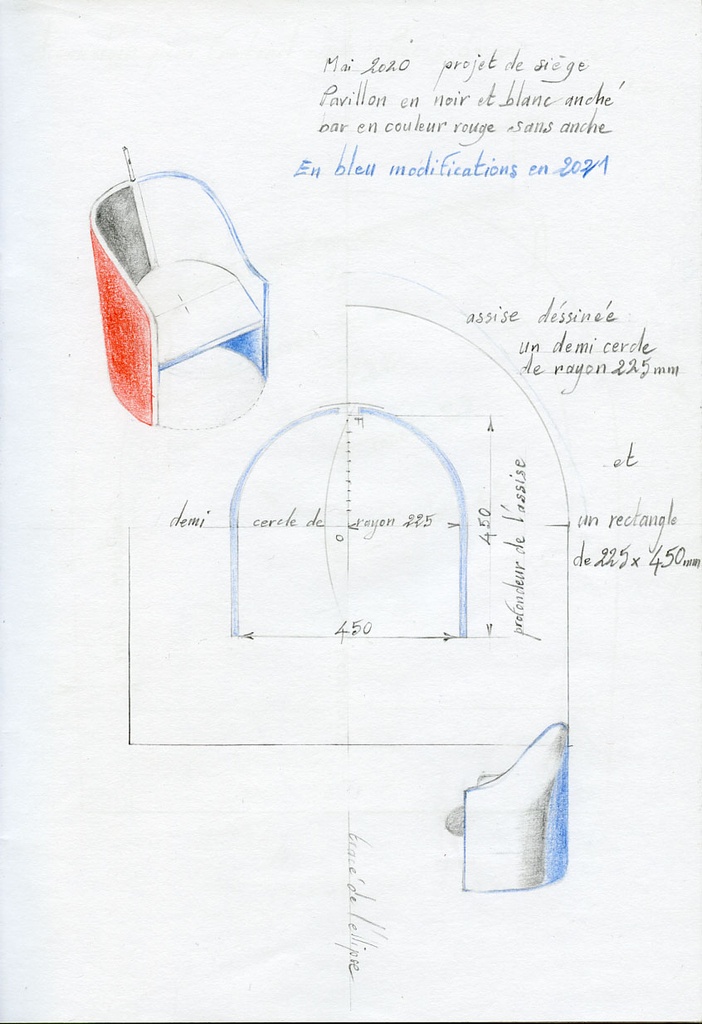 Mai 2020 projet de siège
Pavillon en noir et blanc anché
bar en couleur rouge sans anche
En bleu modifications en 2021
assise déssinée
un demi cercle
de rayon 225mm
et
un rectangle
de 225x450mm
demi cercle de rayon 225
o
450
profondeur de l'assise
450
tracé de l'ellipse